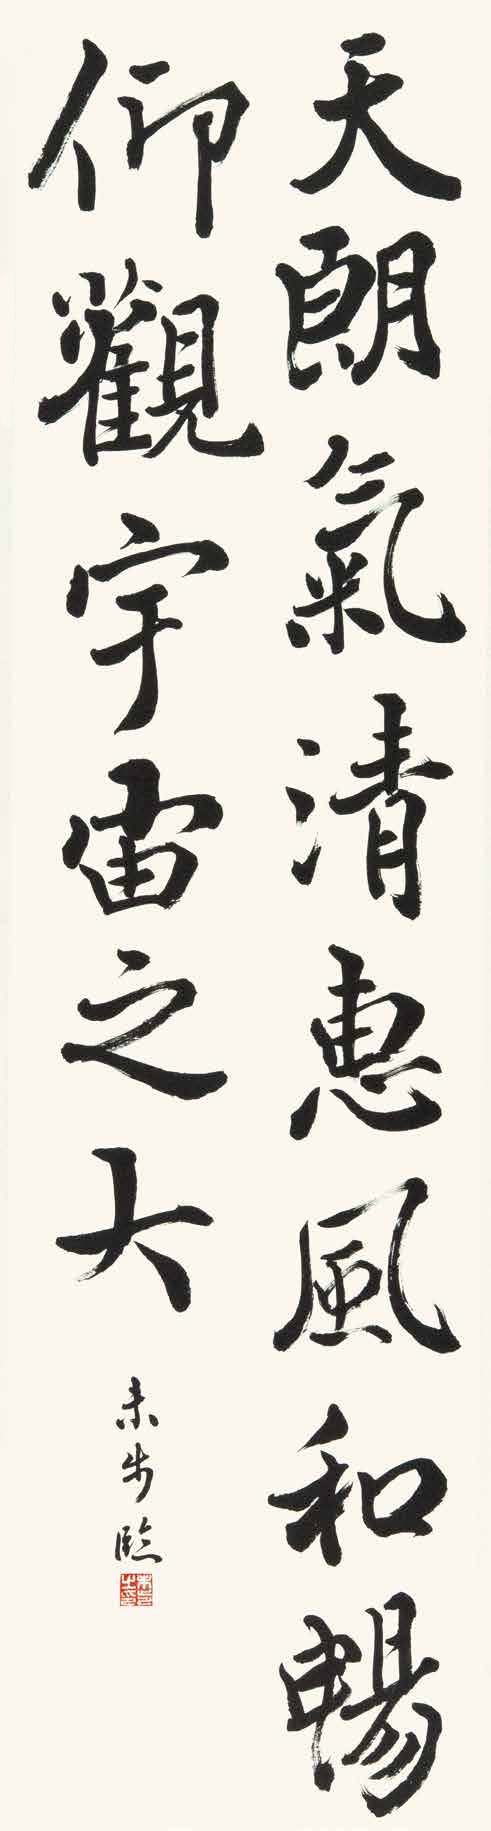 天朗氣清惠風和暢
仰觀宇宙之大
未步臨